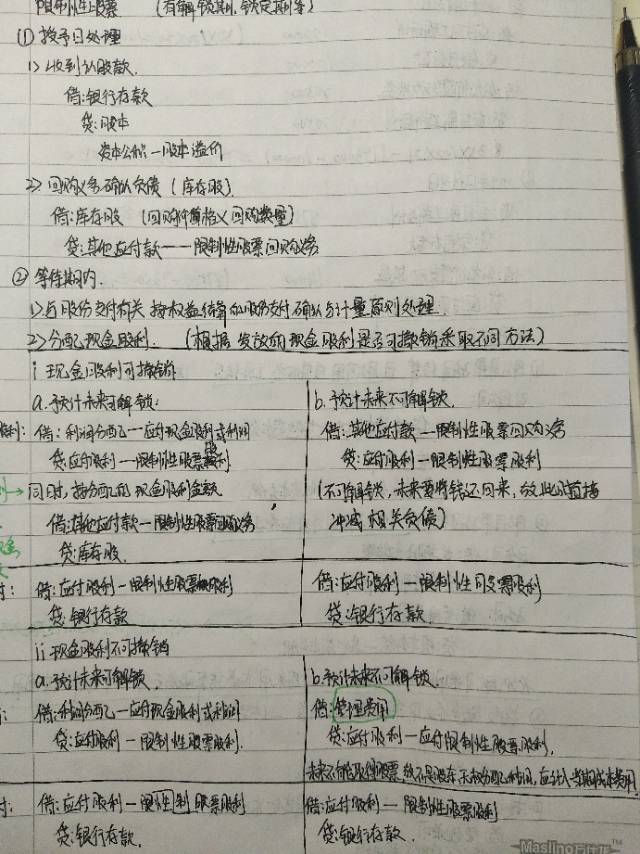 限制性股票 (有解锁期、锁定期等)
① 授予日处理
1> 收到认股款.
借:银行存款
贷:股本
资本公积—股本溢价
2> 回购义务确认负债(库存股).
借:库存股 (回购价格×回购数量)
贷:其他应付款——限制性股票回购义务
② 等待期内.
1>与股份支付有关 按权益结算的股份支付,确认与计量原则处理.
2>分配现金股利. (根据发放的现金股利是否可撤销采取不同方法)
i 现金股利可撤销
a.预计未来可解锁:
b.预计未来不可解锁.
利: 借:利润分配—应付现金股利或利润
借:其他应付款—限制性股票回购义务
贷:应付股利—限制性股票股利
贷:应付股利—限制性股票股利
同时,按分配的现金股利金额
(不可解锁,未来要将钱还回来,故此时直接
借:其他应付款—限制性股票回购义务
冲减相关负债)
贷:库存股.
时: 借:应付股利—限制性股票股利
借:应付股利—限制性股票股利
贷:银行存款
贷:银行存款
ii 现金股利不可撤销
a.预计未来可解锁.
b.预计未来不可解锁.
借:利润分配—应付现金股利或利润
借:管理费用
贷:应付股利—限制性股票股利.
贷:应付股利—应付限制性股票股利.
未来不能取得股票,故不是股东,无权分配利润,应计入当期成本费用
时: 借:应付股利—限性制股票股利
借:应付股利—限制性股票股利
贷:银行存款.
贷:银行存款.
Maslino